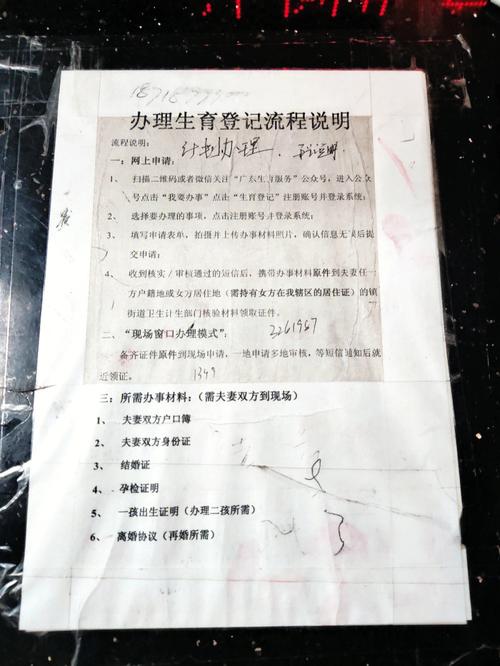 办理生育登记流程说明
流程说明：
计划办理
一：网上申请：
1、 扫描二维码或者微信关注“广东生育服务”公众号，进入公众
号点击“我要办事”点击“生育登记”注册账号并登录系统；
2、 选择要办理的事项，点击注册账号并登录系统；
3、 填写申请表单，拍摄并上传办事材料照片，确认信息无误后提
交申请；
4、 收到核实／审核通过的短信后，携带办事材料原件到夫妻任一
方户籍地或女方居住地（需持有女方在我辖区的居住证）的镇
街道卫生计生部门核验材料领取证件。
二、“现场窗口办理模式”：
2261967
备齐证件原件到现场申请，一地申请多地审核，等短信通知后就
近领证。
1349
三：所需办事材料：（需夫妻双方到现场）
1、 夫妻双方户口簿
2、 夫妻双方身份证
3、 结婚证
4、 孕检证明
5、 一孩出生证明（办理二孩所需）
6、 离婚协议（再婚所需）